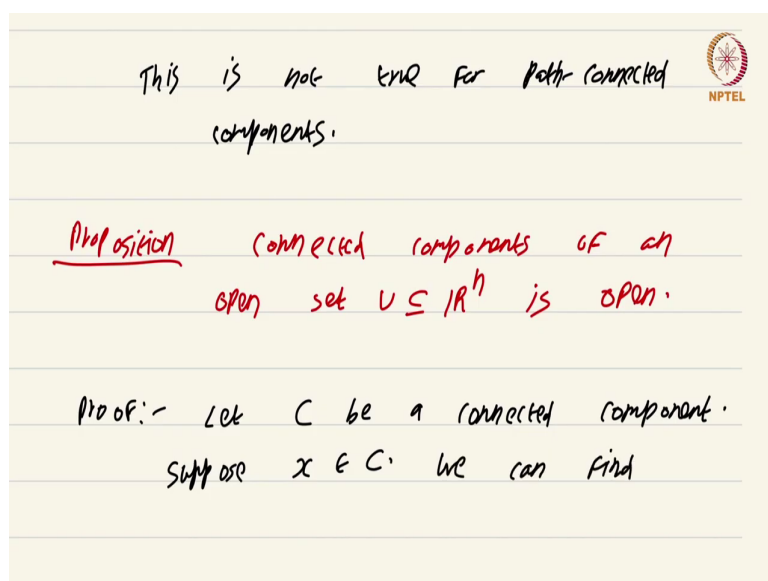 This is not true for path-connected
NPTEL
components.
Proposition Connected components of an
open set U ⊆ ℝⁿ is open.
Proof:- Let C be a connected component.
Suppose x ∈ C. We can find